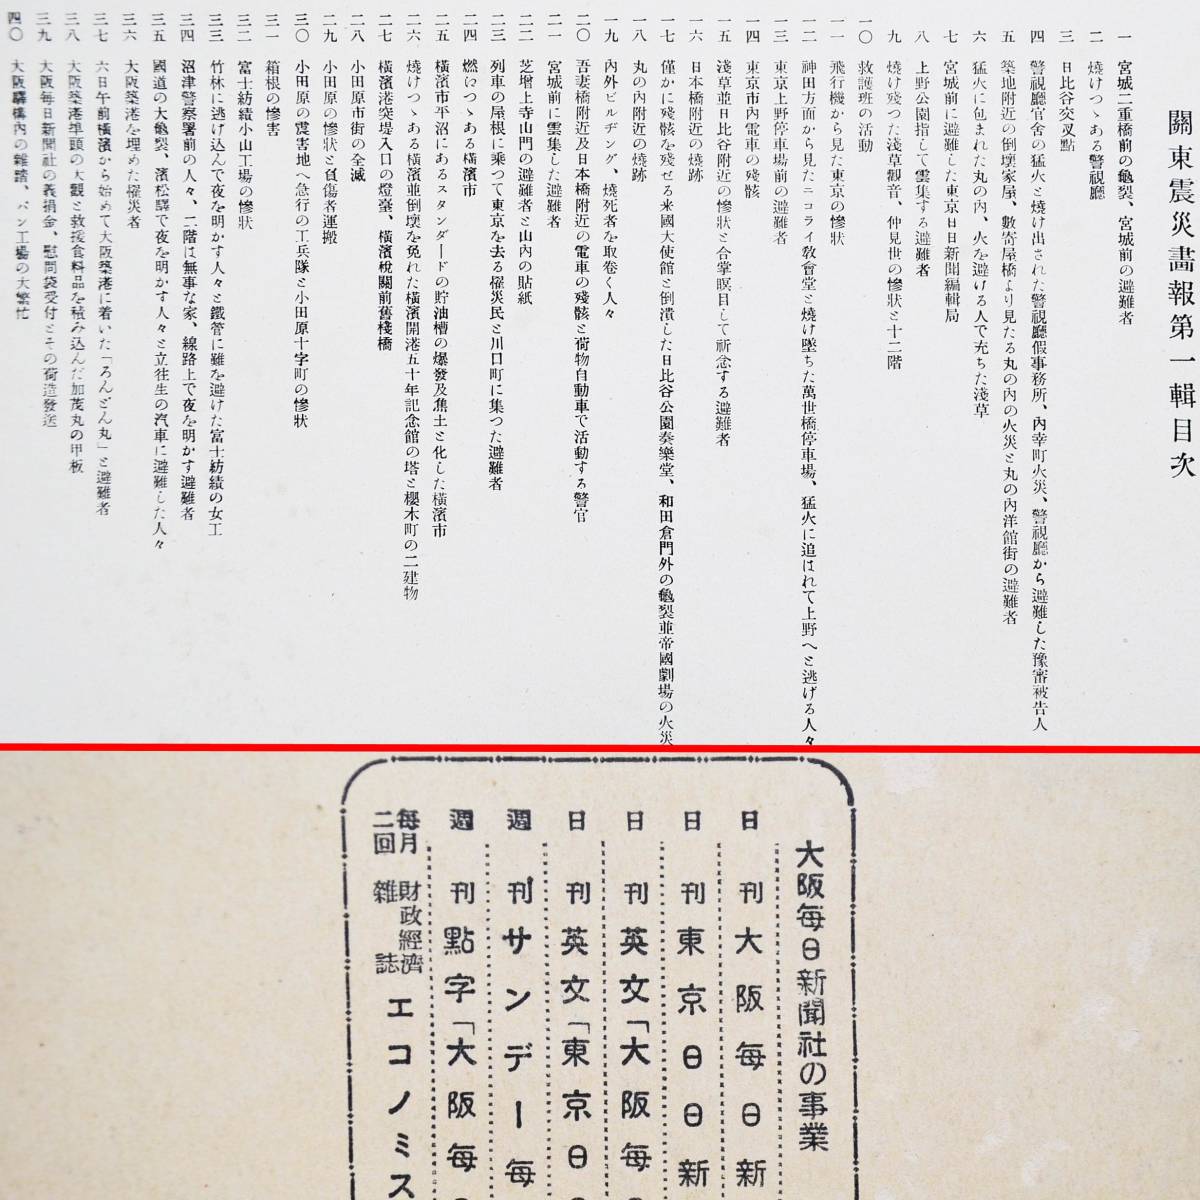 關東震災畫報第一輯目次
一 宮城二重橋前の龜裂、宮城前の避難者
二 燒けつゝある警視廳
三 日比谷交叉點
四 警視廳官舍の猛火と燒け出された警視廳假事務所、內幸町火災、警視廳から避難した豫審被告人
五 築地附近の倒壞家屋、數寄屋橋より見たる丸の內の火災と丸の內洋館街の避難者
六 猛火に包まれた丸の內、火を避ける人で充ちた淺草
七 宮城前に避難した東京日日新聞編輯局
八 上野公園指して雲集する避難者
九 燒け殘つた淺草觀音、仲見世の慘狀と十二階
一〇 救護班の活動
一一 飛行機から見た東京の慘狀
一二 神田方面から見たニコライ敎會堂と燒け墜ちた萬世橋停車場、猛火に追はれて上野へと逃げる人々
一三 東京上野停車場前の避難者
一四 東京市內電車の殘骸
一五 淺草並日比谷附近の慘狀と合掌瞑目して祈念する避難者
一六 日本橋附近の燒跡
一七 僅かに殘骸を殘せる米國大使館と倒潰した日比谷公園奏樂堂、和田倉門外の龜裂並帝國劇場の火災
一八 丸の內附近の燒跡
一九 內外ビルヂング、燒死者を取卷く人々
二〇 吾妻橋附近及日本橋附近の電車の殘骸と荷物自動車で活動する警官
二一 宮城前に雲集した避難者
二二 芝增上寺山門の避難者と山內の貼紙
二三 列車の屋根に乘つて東京を去る罹災民と川口町に集つた避難者
二四 燃につゝある橫濱市
二五 橫濱市平沼にあるスタンダードの貯油槽の爆發及焦土と化した橫濱市
二六 燒けつゝある橫濱並倒壞を免れた橫濱開港五十年記念館の塔と櫻木町の二建物
二七 橫濱港突堤入口の燈臺、橫濱稅關前舊棧橋
二八 小田原市街の全滅
二九 小田原の慘狀と負傷者運搬
三〇 小田原の震害地へ急行の工兵隊と小田原十字町の慘狀
三一 箱根の慘害
三二 富士紡績小山工場の慘狀
三三 竹林に逃げ込んで夜を明かす人々と鐵管に難を避けた富士紡績の女工
三四 沼津警察署前の人々、二階は無事な家、線路上で夜を明かす避難者
三五 國道の大龜裂、濱松驛で夜を明かす人々と立往生の汽車に避難した人々
三六 大阪築港を埋めた罹災者
三七 六日午前橫濱から始めて大阪築港に着いた「ろんどん丸」と避難者
三八 大阪築港埠頭の大觀と救援食料品を積み込んだ加茂丸の甲板
三九 大阪每日新聞社の義捐金、慰問袋受付とその荷造發送
四〇 大阪驛構內の雜踏、パン工場の大繁忙
大阪每日新聞社の事業
日刊 大阪每日新
日刊 東京日日新
日刊 英文「大阪每
日刊 英文「東京日
週刊 サンデー每
週刊 點字「大阪每
每月二回 財政經濟雜誌 エコノミス